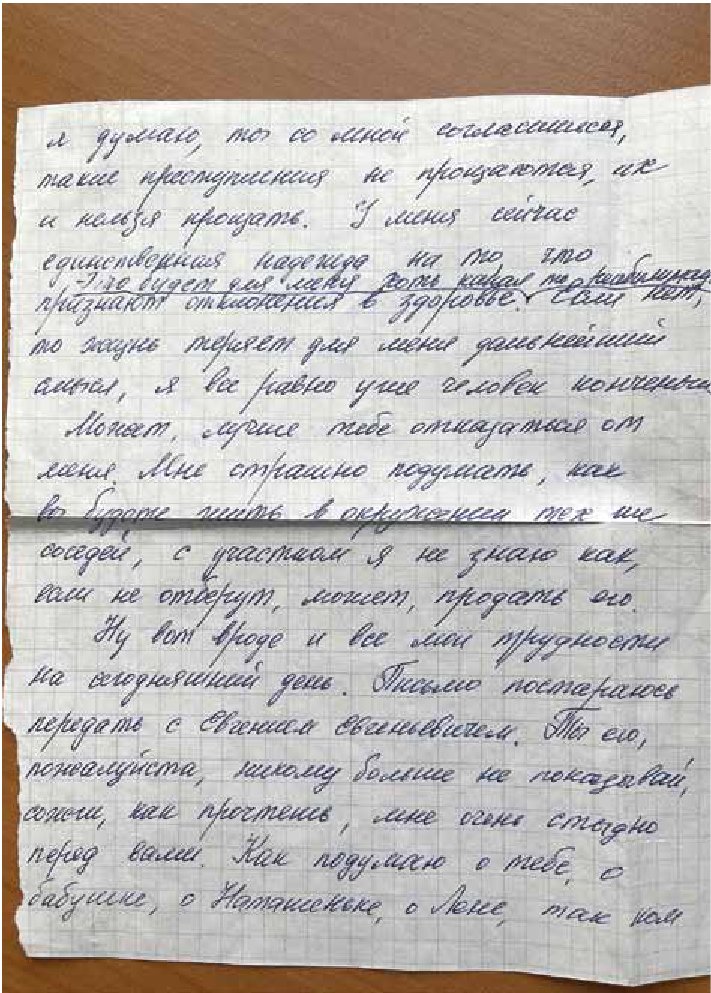 я думаю, ты со мной согласишься,
такие преступления не прощаются, их
и нельзя прощать. У меня сейчас
единственная надежда на то что
Это будет для меня хоть какая то реабилитац
признают отклонения в здоровье. Если нет,
то жизнь теряет для меня дальнейший
смысл, я все равно уже человек конченый
Может, лучше тебе отказаться от
меня. Мне страшно подумать, как
вы будете жить в окружении тех же
соседей, с участком я не знаю как,
если не отберут, может, продать его.
Ну вот вроде и все мои трудности
на сегодняшний день. Письмо постараюсь
передать с Евгением Евгеньевичем. Ты его,
пожалуйста, никому больше не показывай,
сожги, как прочтешь, мне очень стыдно
перед вами. Как подумаю о тебе, о
бабушке, о Наташеньке, о Лене, так ком